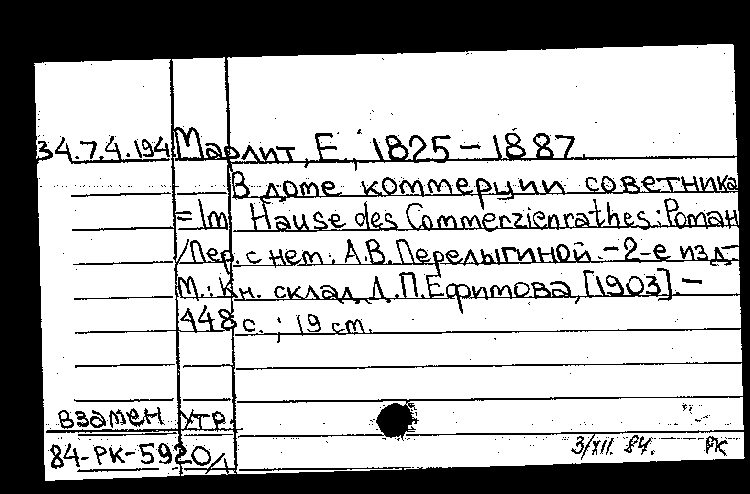 34.7.4.194 Марлит, Е., 1825-1887.
В доме коммерции советника
=Im Hause des Commerzienrathes: Роман
/Пер. с нем. А.В. Перелыгиной. -2-е изд-
М.: Кн. склад Д.П. Ефимова, [1903]. -
448 с. ; 19 cm.
взамен утр.
84-РК-5920/1
3/XII. 84. РК